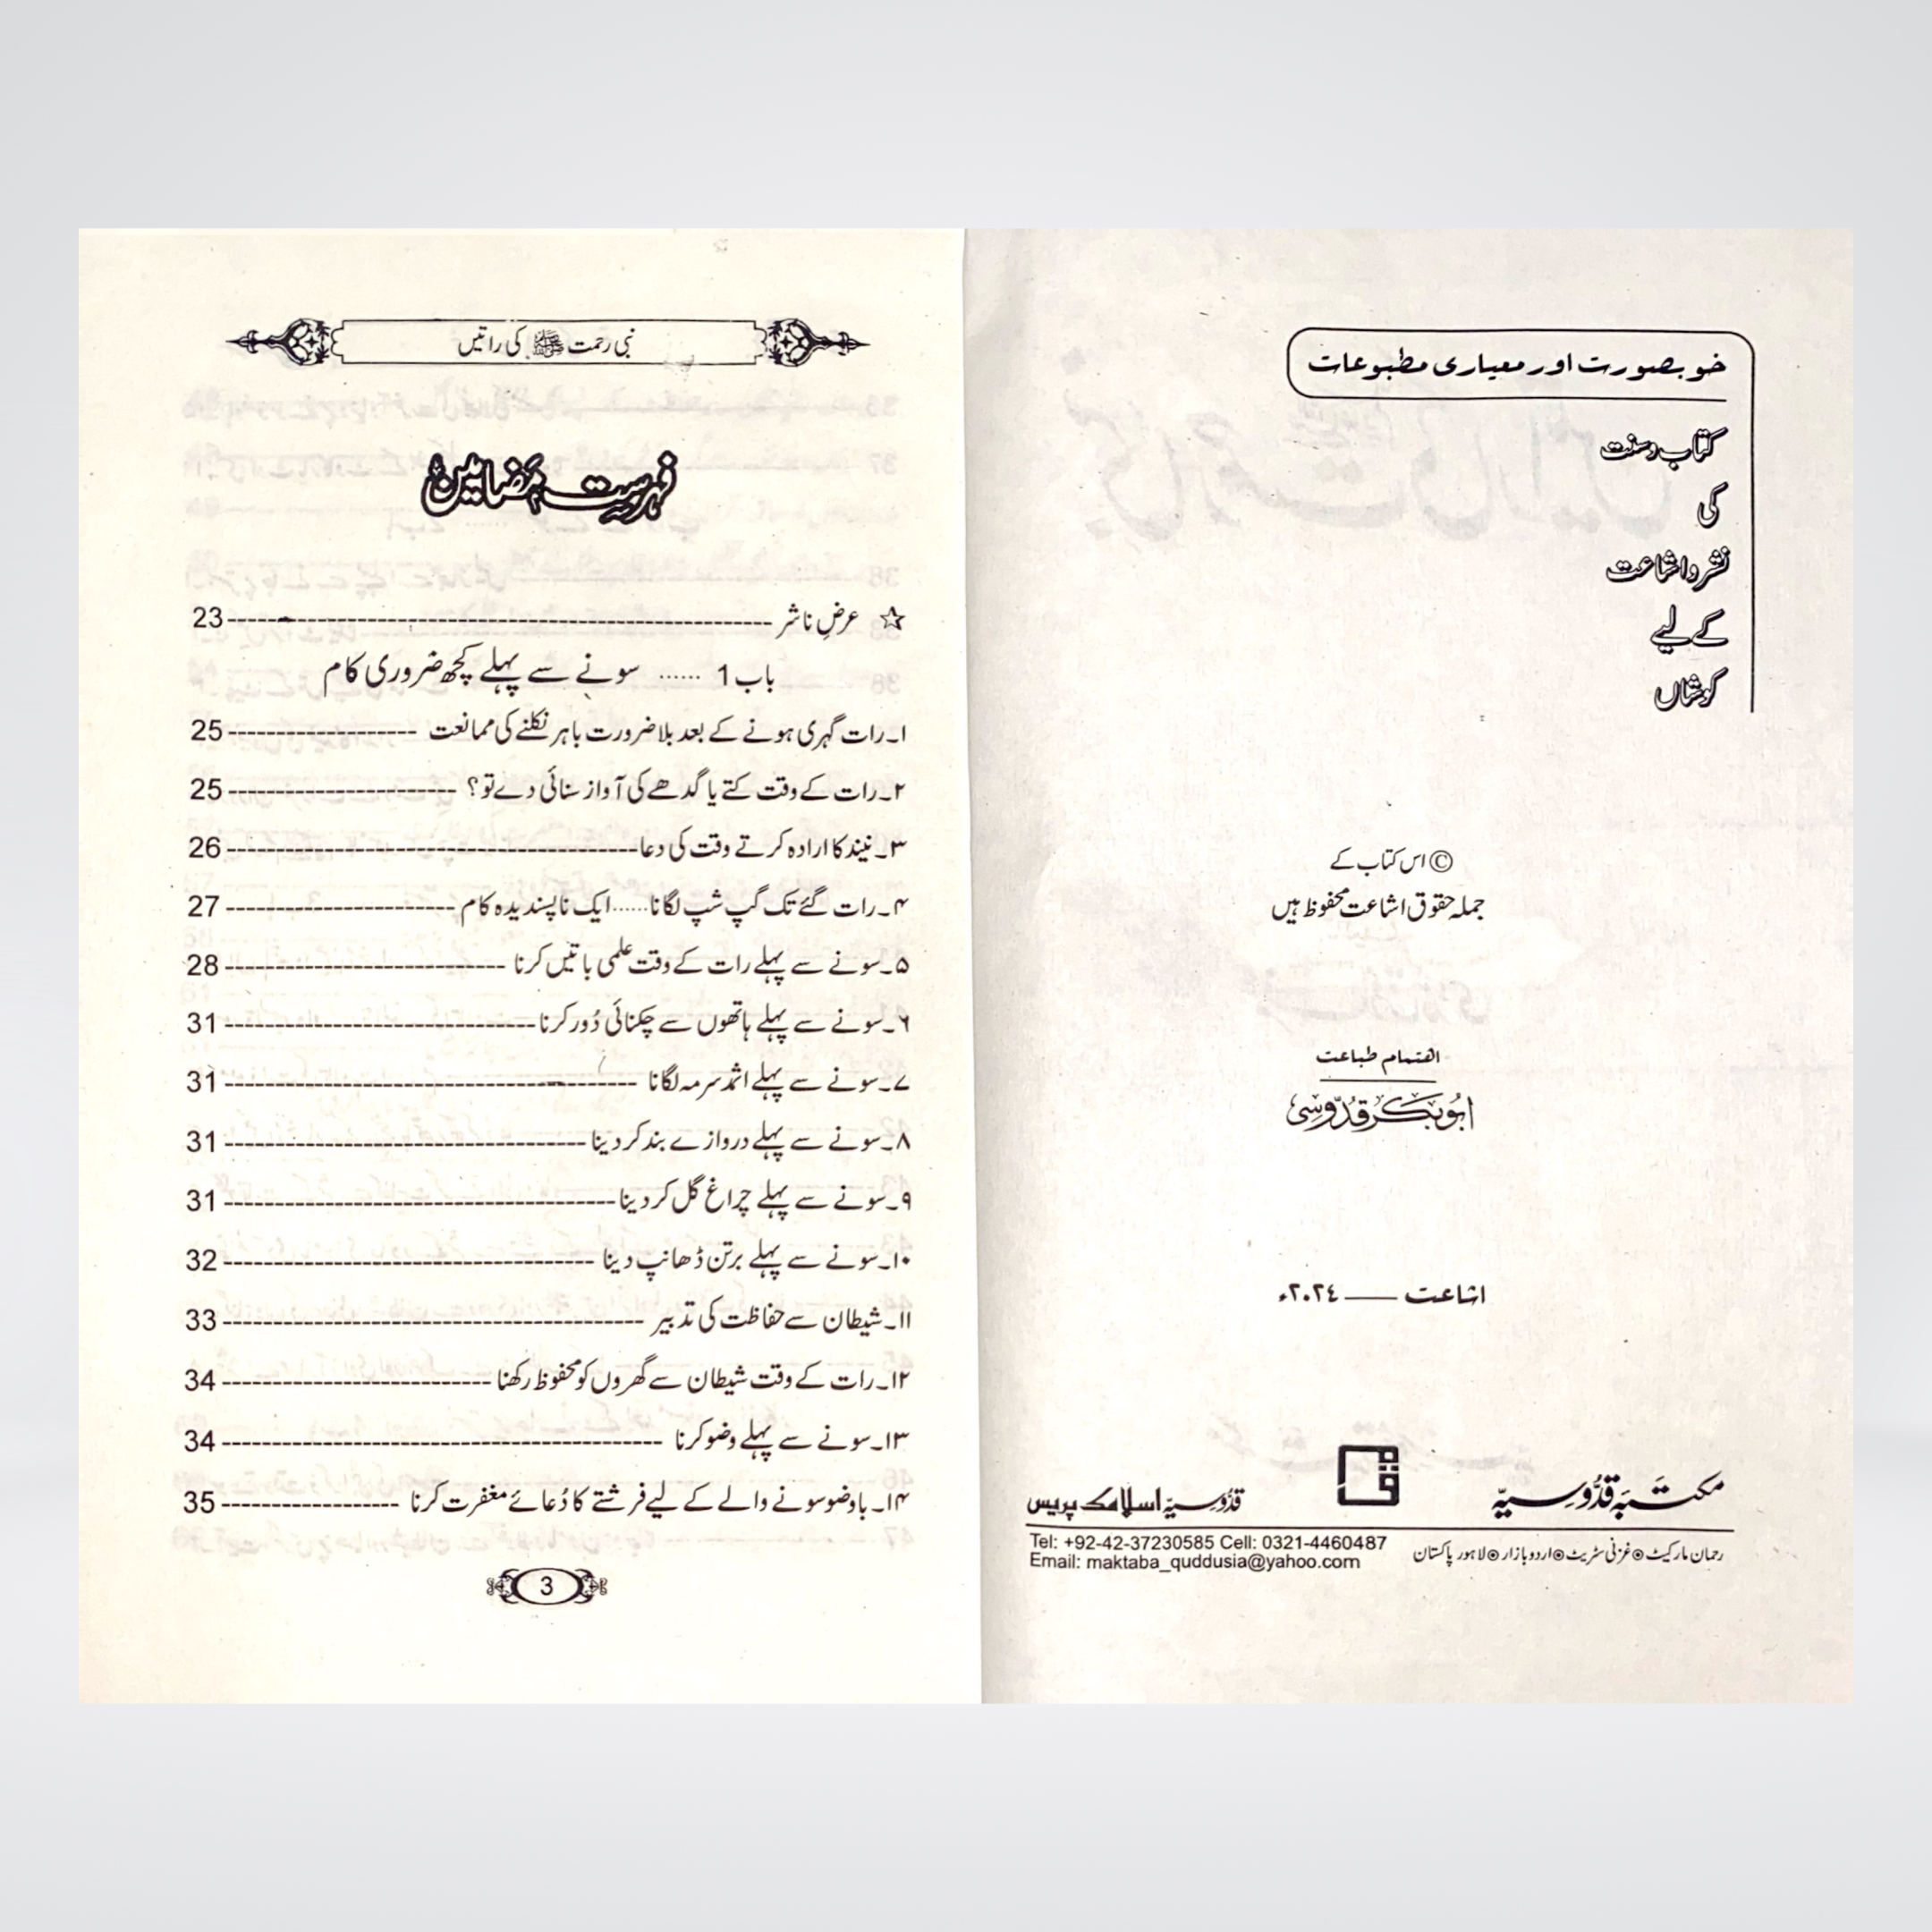 خوبصورت اور معیاری مطبوعات
کتاب و سنت
کی
نشر و اشاعت
کے لیے
کوشاں
© اس کتاب کے
جملہ حقوق اشاعت محفوظ ہیں
اهتمام طباعت
ابوبکر قدّوسی
اشاعت —— ۲۰۲٤ء
مکتبہ قدّوسیہ
قدّوسیہ اسلامک پریس
رحمان مارکیٹ ⊙ غزنی سٹریٹ ⊙ اردو بازار ⊙ لاہور پاکستان
Tel: +92-42-37230585 Cell: 0321-4460487
Email: maktaba_quddusia@yahoo.com
نبی رحمت ﷺ کی راتیں
فہرست مضامین
☆ عرضِ ناشر ---------- 23
باب 1 ...... سونے سے پہلے کچھ ضروری کام
۱۔ رات گہری ہونے کے بعد بلا ضرورت باہر نکلنے کی ممانعت ---------- 25
۲۔ رات کے وقت کتے یا گدھے کی آواز سنائی دے تو؟ ---------- 25
۳۔ نیند کا ارادہ کرتے وقت کی دعا ---------- 26
۴۔ رات گئے تک گپ شپ لگانا...... ایک ناپسندیدہ کام ---------- 27
۵۔ سونے سے پہلے رات کے وقت علمی باتیں کرنا ---------- 28
۶۔ سونے سے پہلے ہاتھوں سے چکنائی دُور کرنا ---------- 31
۷۔ سونے سے پہلے اثمد سرمہ لگانا ---------- 31
۸۔ سونے سے پہلے دروازے بند کر دینا ---------- 31
۹۔ سونے سے پہلے چراغ گل کر دینا ---------- 31
۱۰۔ سونے سے پہلے برتن ڈھانپ دینا ---------- 32
۱۱۔ شیطان سے حفاظت کی تدبیر ---------- 33
۱۲۔ رات کے وقت شیطان سے گھروں کو محفوظ رکھنا ---------- 34
۱۳۔ سونے سے پہلے وضو کرنا ---------- 34
۱۴۔ باوضو سونے والے کے لیے فرشتے کا دُعائے مغفرت کرنا ---------- 35
3